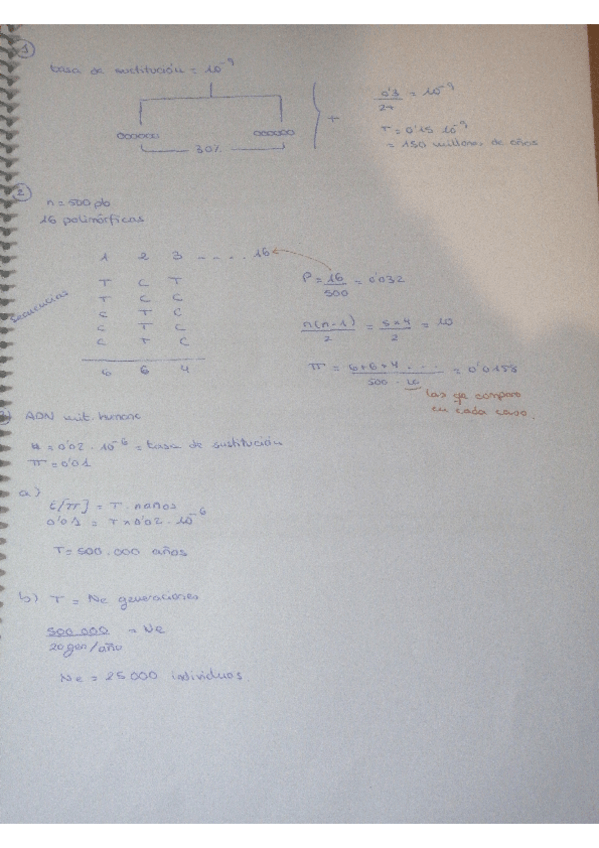 1
tasa de sustitución = 10⁻⁹
30%
0'3 / 2T = 10⁻⁹
T = 0'15 10⁻⁹
= 150 millones de años
2
n = 500 pb
16 polimórficas
1 2 3 - - . . . . 16
secuencias
T C T
T C C
C T C
C T C
C T C
6 6 4
P = 16 / 500 = 0'032
n(n-1) / 2 = 5×4 / 2 = 10
π = 6+6+4 . . . / 500 · 10 = 0'0158
las qe comparo
en cada caso.
ADN mit. humano
= 0'02 · 10⁻⁶ = tasa de sustitución
π = 0'01
a)
E[π] = T · nanos
0'01 = T × 0'02 · 10⁻⁶
T = 500.000 años
b) T = Ne generaciones
500 000 / 20 gen/año = Ne
Ne = 25 000 individuos